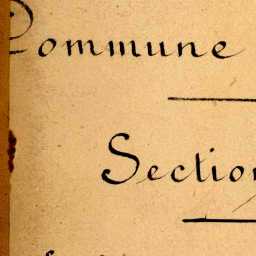 Commune
Section